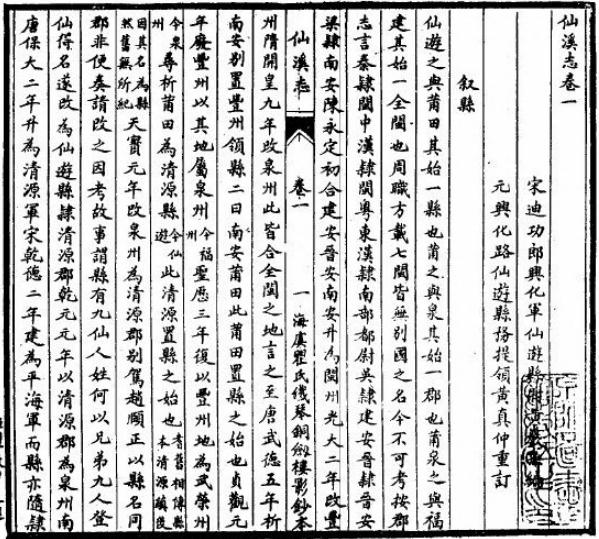 仙溪志卷一
宋迪功郎興化軍仙遊縣
元興化路仙遊縣務提領黃真仲重訂
叙縣
仙遊之與莆田其始一縣也莆之與泉其始一郡也莆泉之與福
建其始一全閩也周職方載七閩皆無別國之名今不可考按郡
志言秦隸閩中漢隸閩粤東漢隸南部都尉吳隸建安晉隸晉安
梁隸南安陳永定初合建安晉安南安升為閩州光大二年改豐
仙溪志 卷一 一 海虞瞿氏鐵琴銅劍樓影鈔本
州隋開皇九年改泉州此皆合全閩之地言之至唐武德五年析
南安別置豐州領縣二曰南安莆田此莆田置縣之始也貞觀元
年廢豐州以其地屬泉州今福州聖歷三年復以豐州地為武榮州
今泉州尋析莆田為清源縣今仙遊此清源置縣之始也耆舊相傳縣本清源鎮茂
因其名為縣然舊無所紀天寶元年改泉州為清源郡別駕趙頤正以縣名同
郡非便奏請改之因考故事謂縣有九仙人姓何以兄弟九人登
仙得名遂改為仙遊縣隸清源郡乾元元年以清源郡為泉州南
唐保大二年升為清源軍宋乾德二年建為平海軍而縣亦隨隸